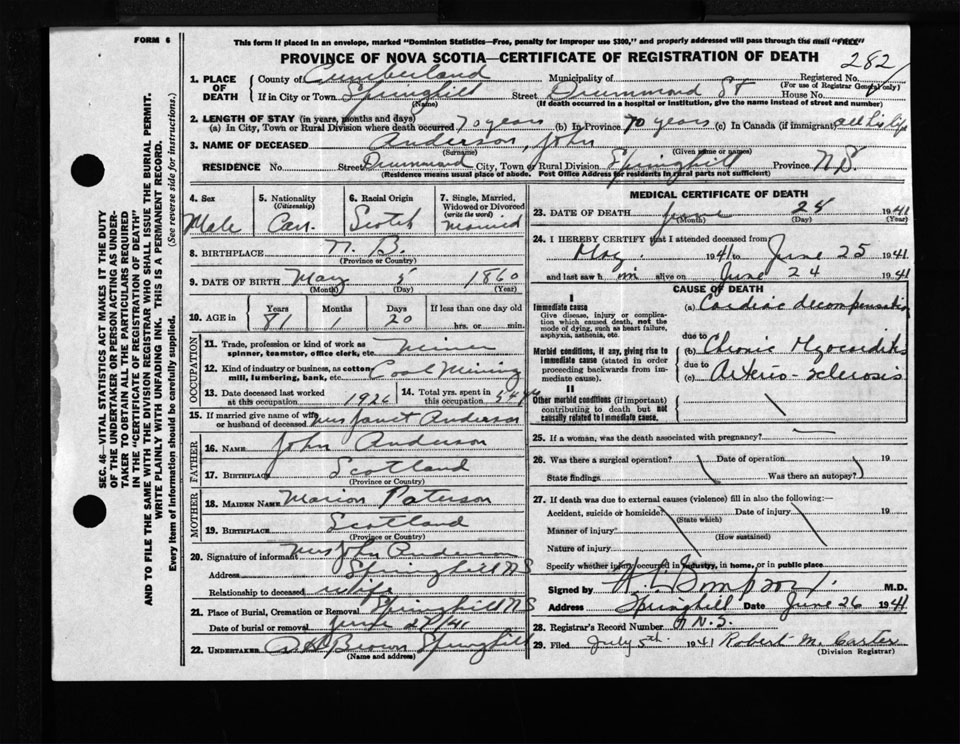 FORM 6
This form if placed in an envelope, marked "Dominion Statistics—Free, penalty for improper use $300," and properly addressed will pass through the mail "FREE"
PROVINCE OF NOVA SCOTIA—CERTIFICATE OF REGISTRATION OF DEATH 282
1. PLACE OF DEATH County of Cumberland Municipality of Registered No.
(For use of Registrar General only)
If in City or Town Springhill Street Drummond St House No.
(Name) (If death occurred in a hospital or institution, give the name instead of street and number)
2. LENGTH OF STAY (in years, months and days)
(a) In City, Town or Rural Division where death occurred 70 years (b) In Province 70 years (c) In Canada (if immigrant) all his life
3. NAME OF DECEASED Anderson, John
(Surname) (Given name or names)
RESIDENCE No. Street Drummond City, Town or Rural Division Springhill Province N.S.
(Residence means usual place of abode. Post Office Address for residents in rural parts not sufficient)
4. Sex 5. Nationality (Citizenship) 6. Racial Origin 7. Single, Married, Widowed or Divorced (write the word)
Male Can. Scotch Married
8. BIRTHPLACE N. B.
(Province or Country)
9. DATE OF BIRTH May 5 1860
(Month) (Day) (Year)
10. AGE in Years Months Days If less than one day old
81 1 20 hrs. or min.
OCCUPATION
11. Trade, profession or kind of work as spinner, teamster, office clerk, etc. Miner
12. Kind of industry or business, as cotton mill, lumbering, bank, etc. Coal Mining
13. Date deceased last worked at this occupation 1926 14. Total yrs. spent in this occupation 54
15. If married give name of wife or husband of deceased Mrs Janet Anderson
FATHER
16. NAME John Anderson
17. BIRTHPLACE Scotland
(Province or Country)
MOTHER
18. MAIDEN NAME Marion Paterson
19. BIRTHPLACE Scotland
(Province or Country)
20. Signature of informant Mrs John Anderson
Address Springhill NS
Relationship to deceased wife
21. Place of Burial, Cremation or Removal Springhill NS
Date of burial or removal June 27/41
22. UNDERTAKER Brown Springhill
(Name and address)
MEDICAL CERTIFICATE OF DEATH
23. DATE OF DEATH June 25 1941
(Month) (Day) (Year)
24. I HEREBY CERTIFY that I attended deceased from
May 1941 to June 25 1941
and last saw him alive on June 24 1941
CAUSE OF DEATH
I
Immediate cause
Give disease, injury or complication which caused death, not the mode of dying, such as heart failure, asphyxia, asthenia, etc.
(a) Cardiac decompensation
due to
Morbid conditions, if any, giving rise to immediate cause (stated in order proceeding backwards from immediate cause).
(b) Chronic Myocarditis
due to
(c) Arterio-sclerosis
II
Other morbid conditions (if important) contributing to death but not causally related to immediate cause.
25. If a woman, was the death associated with pregnancy? —
26. Was there a surgical operation? Date of operation 19
State findings Was there an autopsy?
27. If death was due to external causes (violence) fill in also the following:—
Accident, suicide or homicide? Date of injury 19
(State which)
Manner of injury
(How sustained)
Nature of injury
Specify whether injury occurred in industry, in home, or in public place
Signed by M.D.
Address Springhill Date June 26 1941
N.S.
28. Registrar's Record Number
29. Filed July 5th 1941 Robert M. Carter
(Division Registrar)
SEC. 46—VITAL STATISTICS ACT MAKES IT THE DUTY
OF THE UNDERTAKER OR PERSON ACTING AS UNDER-
TAKER TO OBTAIN ALL THE PARTICULARS REQUIRED
IN THE "CERTIFICATE OF REGISTRATION OF DEATH"
AND TO FILE THE SAME WITH THE DIVISION REGISTRAR WHO SHALL ISSUE THE BURIAL PERMIT.
WRITE PLAINLY WITH UNFADING INK. THIS IS A PERMANENT RECORD.
Every item of information should be carefully supplied. (See reverse side for instructions.)